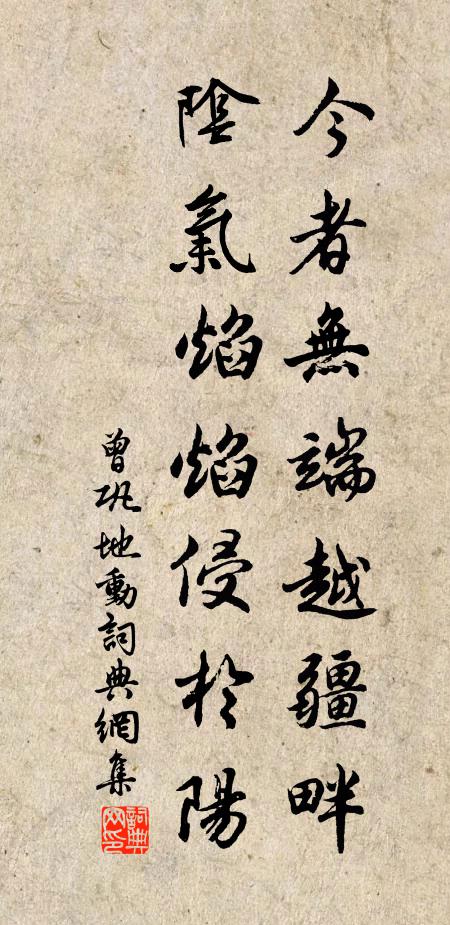 今者無端越疆畔
陰氣焰焰侵於陽
曾巩地動詞典網集
詞典網印